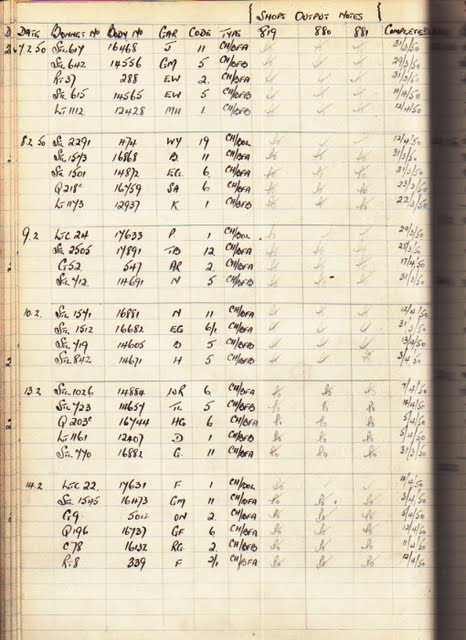 SHOPS OUTPUT NOTES
DATE BONNET NO BODY NO GAR CODE TYPE 819 880 881 COMPLETED
7.2.50 STL 617 16468 J 11 CH/OFA 31/3/50
STL 642 14556 GM 5 CH/OFB 29/3/50
RT 37 288 EW 2 CH/OFA 31/3/50
STL 615 14565 EW 5 CH/OFB 11/4/50
LT 1112 12428 MH 1 CH/OFB 12/4/50
8.2.50 STL 2291 474 WY 19 CH/DOL 12/4/50
STL 1573 16868 B 11 CH/OFA 31/3/50
STL 1501 14872 EG 6 CH/OFA 31/3/50
Q 218 16759 SA 6 CH/OFA 23/3/50
LT 1173 12937 K 1 CH/OFB 22/3/50
9.2 LTC 24 17633 P 1 CH/DOL 29/3/50
STL 2505 17891 TB 12 CH/OFA 28/3/50
G 52 547 AR 2 CH/OFA 17/4/50
STL 712 14691 N 5 CH/OFB 31/3/50
10.2 STL 1571 16881 N 11 CH/OFA 12/4/50
STL 1512 16682 EG 6/1 CH/OFA 31/3/50
STL 719 14605 B 5 CH/OFB 13/4/50
STL 842 14671 H 5 CH/OFB 3/4/50
13.2 STL 1026 14884 NR 6 CH/OFA 7/4/50
STL 723 14657 TL 5 CH/OFB 11/4/50
Q 203 16744 HG 6 CH/OFA 5/4/50
LT 1161 12407 D 1 CH/OFB 5/4/50
STL 770 16882 G 11 CH/OFA 31/3/50
14.2 LTC 22 17631 F 1 CH/DOL 11/4/50
STL 1545 16473 GM 11 CH/OFA 3/4/50
G 9 504 ON 2 CH/OFA 5/4/50
Q 196 16737 GF 6 CH/OFA 13/4/50
C 78 16132 RG 2 CH/OFB 11/4/50
RT 8 339 F 2/1 CH/OFA 12/4/50